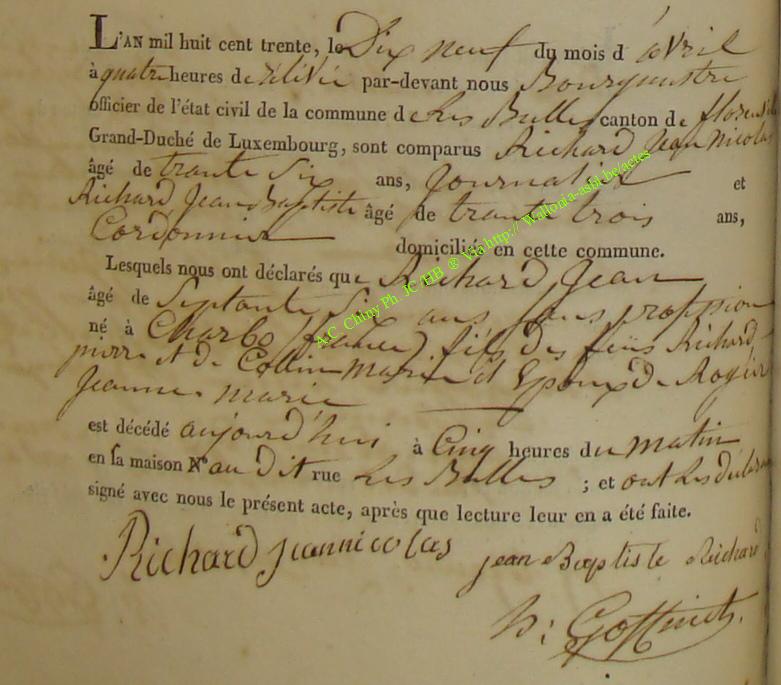 L'AN mil huit cent trente, le Dix neuf du mois d'avril
à quatre heures de relévée par-devant nous Bourgmestre
officier de l'état civil de la commune de Les Bulles canton de florenville
Grand-Duché de Luxembourg, sont comparus Richard Jean Nicolas
âgé de trante Six ans, Journalier et
Richard Jean Baptiste âgé de trante trois ans,
Cordonnier domicilié en cette commune.
Lesquels nous ont déclarés que Richard Jean
âgé de Septante Six ans Sans proffession
né à Charbo (france) fils des feus Richard
pierre et de Collin Marie et Epoux de Rogier
Jeanne marie
est décédé aujourd'hui à Cinq heures du matin
en sa maison N° au dit rue Les Bulles ; et ont Les déclarans
signé avec nous le présent acte, après que lecture leur en a été faite.
Richard jeannicolas jean Baptiste Richard
h: Goffinet
A.C. Chiny Ph. JC /HB ® Via http:// Wallonia-asbl.be/actes